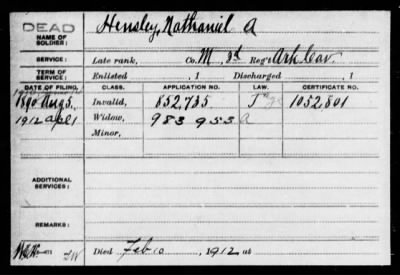 DEAD
NAME OF SOLDIER: Hensley, Nathaniel A
SERVICE: Late rank, Co. M, 3d Reg't Ark Cav.
TERM OF SERVICE: Enlisted , 1 Discharged , 1
DATE OF FILING. CLASS. APPLICATION NO. LAW. CERTIFICATE NO.
1890 Aug 5. Invalid, 852,735 1052,801
1912 Apl 1 Widow, 983 953 A
Minor,
ADDITIONAL SERVICES:
REMARKS:
Died Feb 10, 1912 at